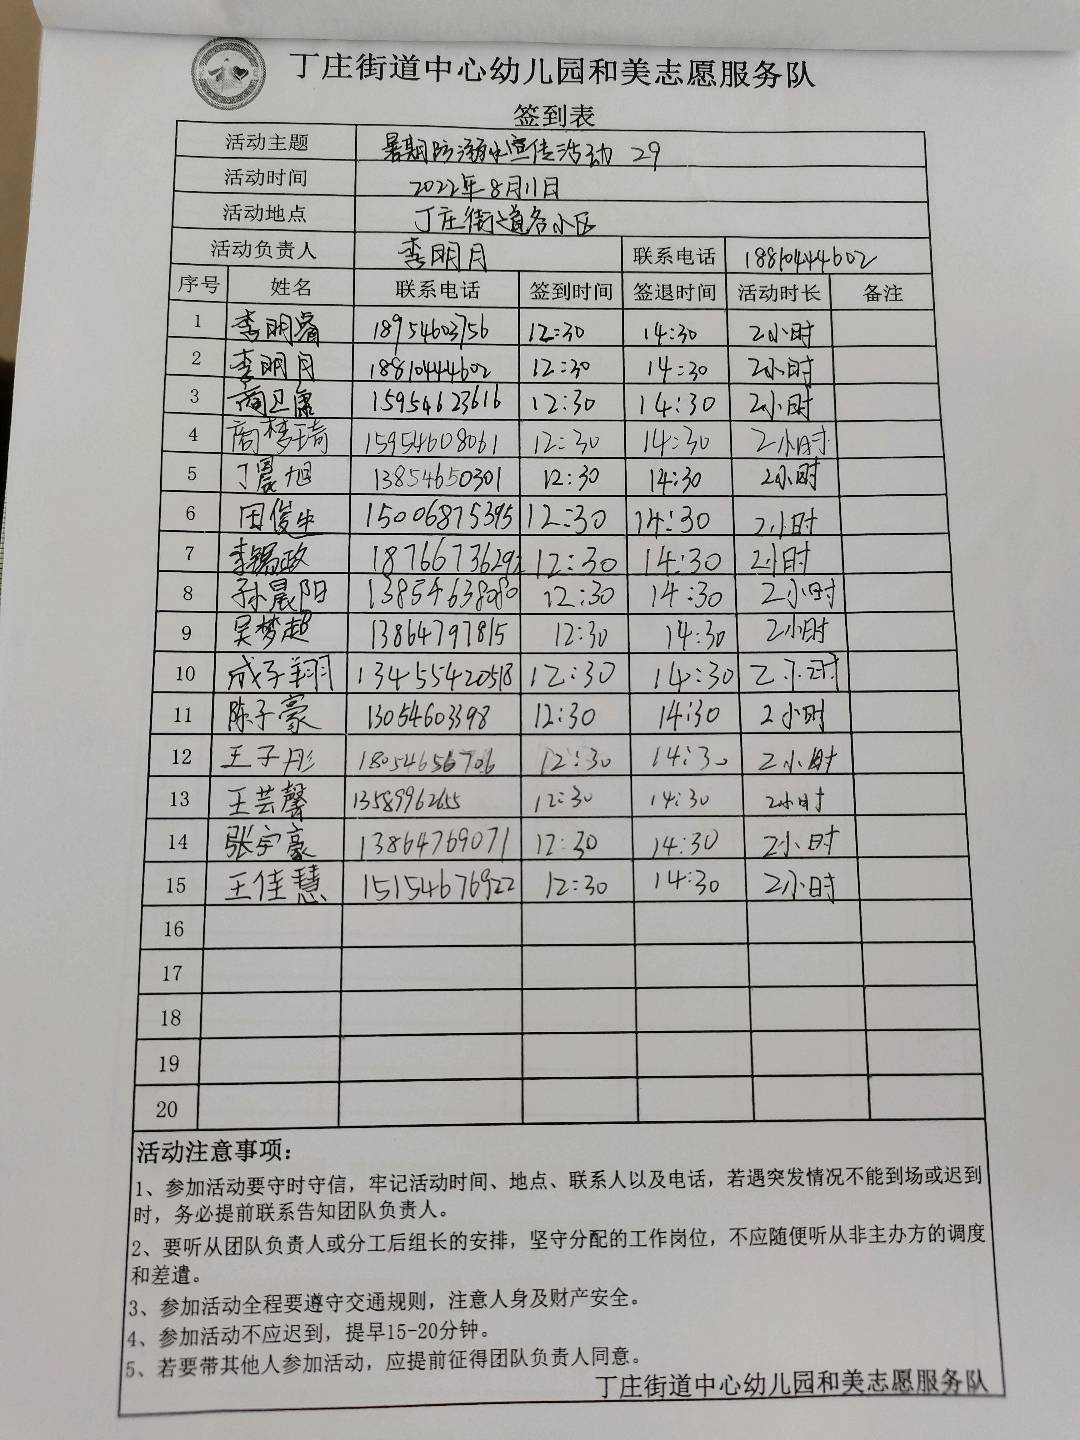 丁庄街道中心幼儿园和美志愿服务队
签到表
活动主题 暑期防溺水宣传活动 29
活动时间 2022年8月11日
活动地点 丁庄街道各小区
活动负责人 李明月 联系电话 18810444602
序号 姓名 联系电话 签到时间 签退时间 活动时长 备注
1 李明睿 18954603756 12:30 14:30 2小时
2 李明月 18810444602 12:30 14:30 2小时
3 商卫康 15954623616 12:30 14:30 2小时
4 商梦琦 15954608061 12:30 14:30 2小时
5 丁晨旭 13854650301 12:30 14:30 2小时
6 田俊生 15006875395 12:30 14:30 2小时
7 李锡政 18766736292 12:30 14:30 2小时
8 孙晨阳 13854638080 12:30 14:30 2小时
9 吴梦超 13864797815 12:30 14:30 2小时
10 成子翔 13455420518 12:30 14:30 2小时
11 陈子豪 13054603398 12:30 14:30 2小时
12 王子彤 18054656706 12:30 14:30 2小时
13 王芸馨 13589962655 12:30 14:30 2小时
14 张宇豪 13864769071 12:30 14:30 2小时
15 王佳慧 15154676922 12:30 14:30 2小时
16
17
18
19
20
活动注意事项：
1、参加活动要守时守信，牢记活动时间、地点、联系人以及电话，若遇突发情况不能到场或迟到
时，务必提前联系告知团队负责人。
2、要听从团队负责人或分工后组长的安排，坚守分配的工作岗位，不应随便听从非主办方的调度
和差遣。
3、参加活动全程要遵守交通规则，注意人身及财产安全。
4、参加活动不应迟到，提早15-20分钟。
5、若要带其他人参加活动，应提前征得团队负责人同意。
丁庄街道中心幼儿园和美志愿服务队